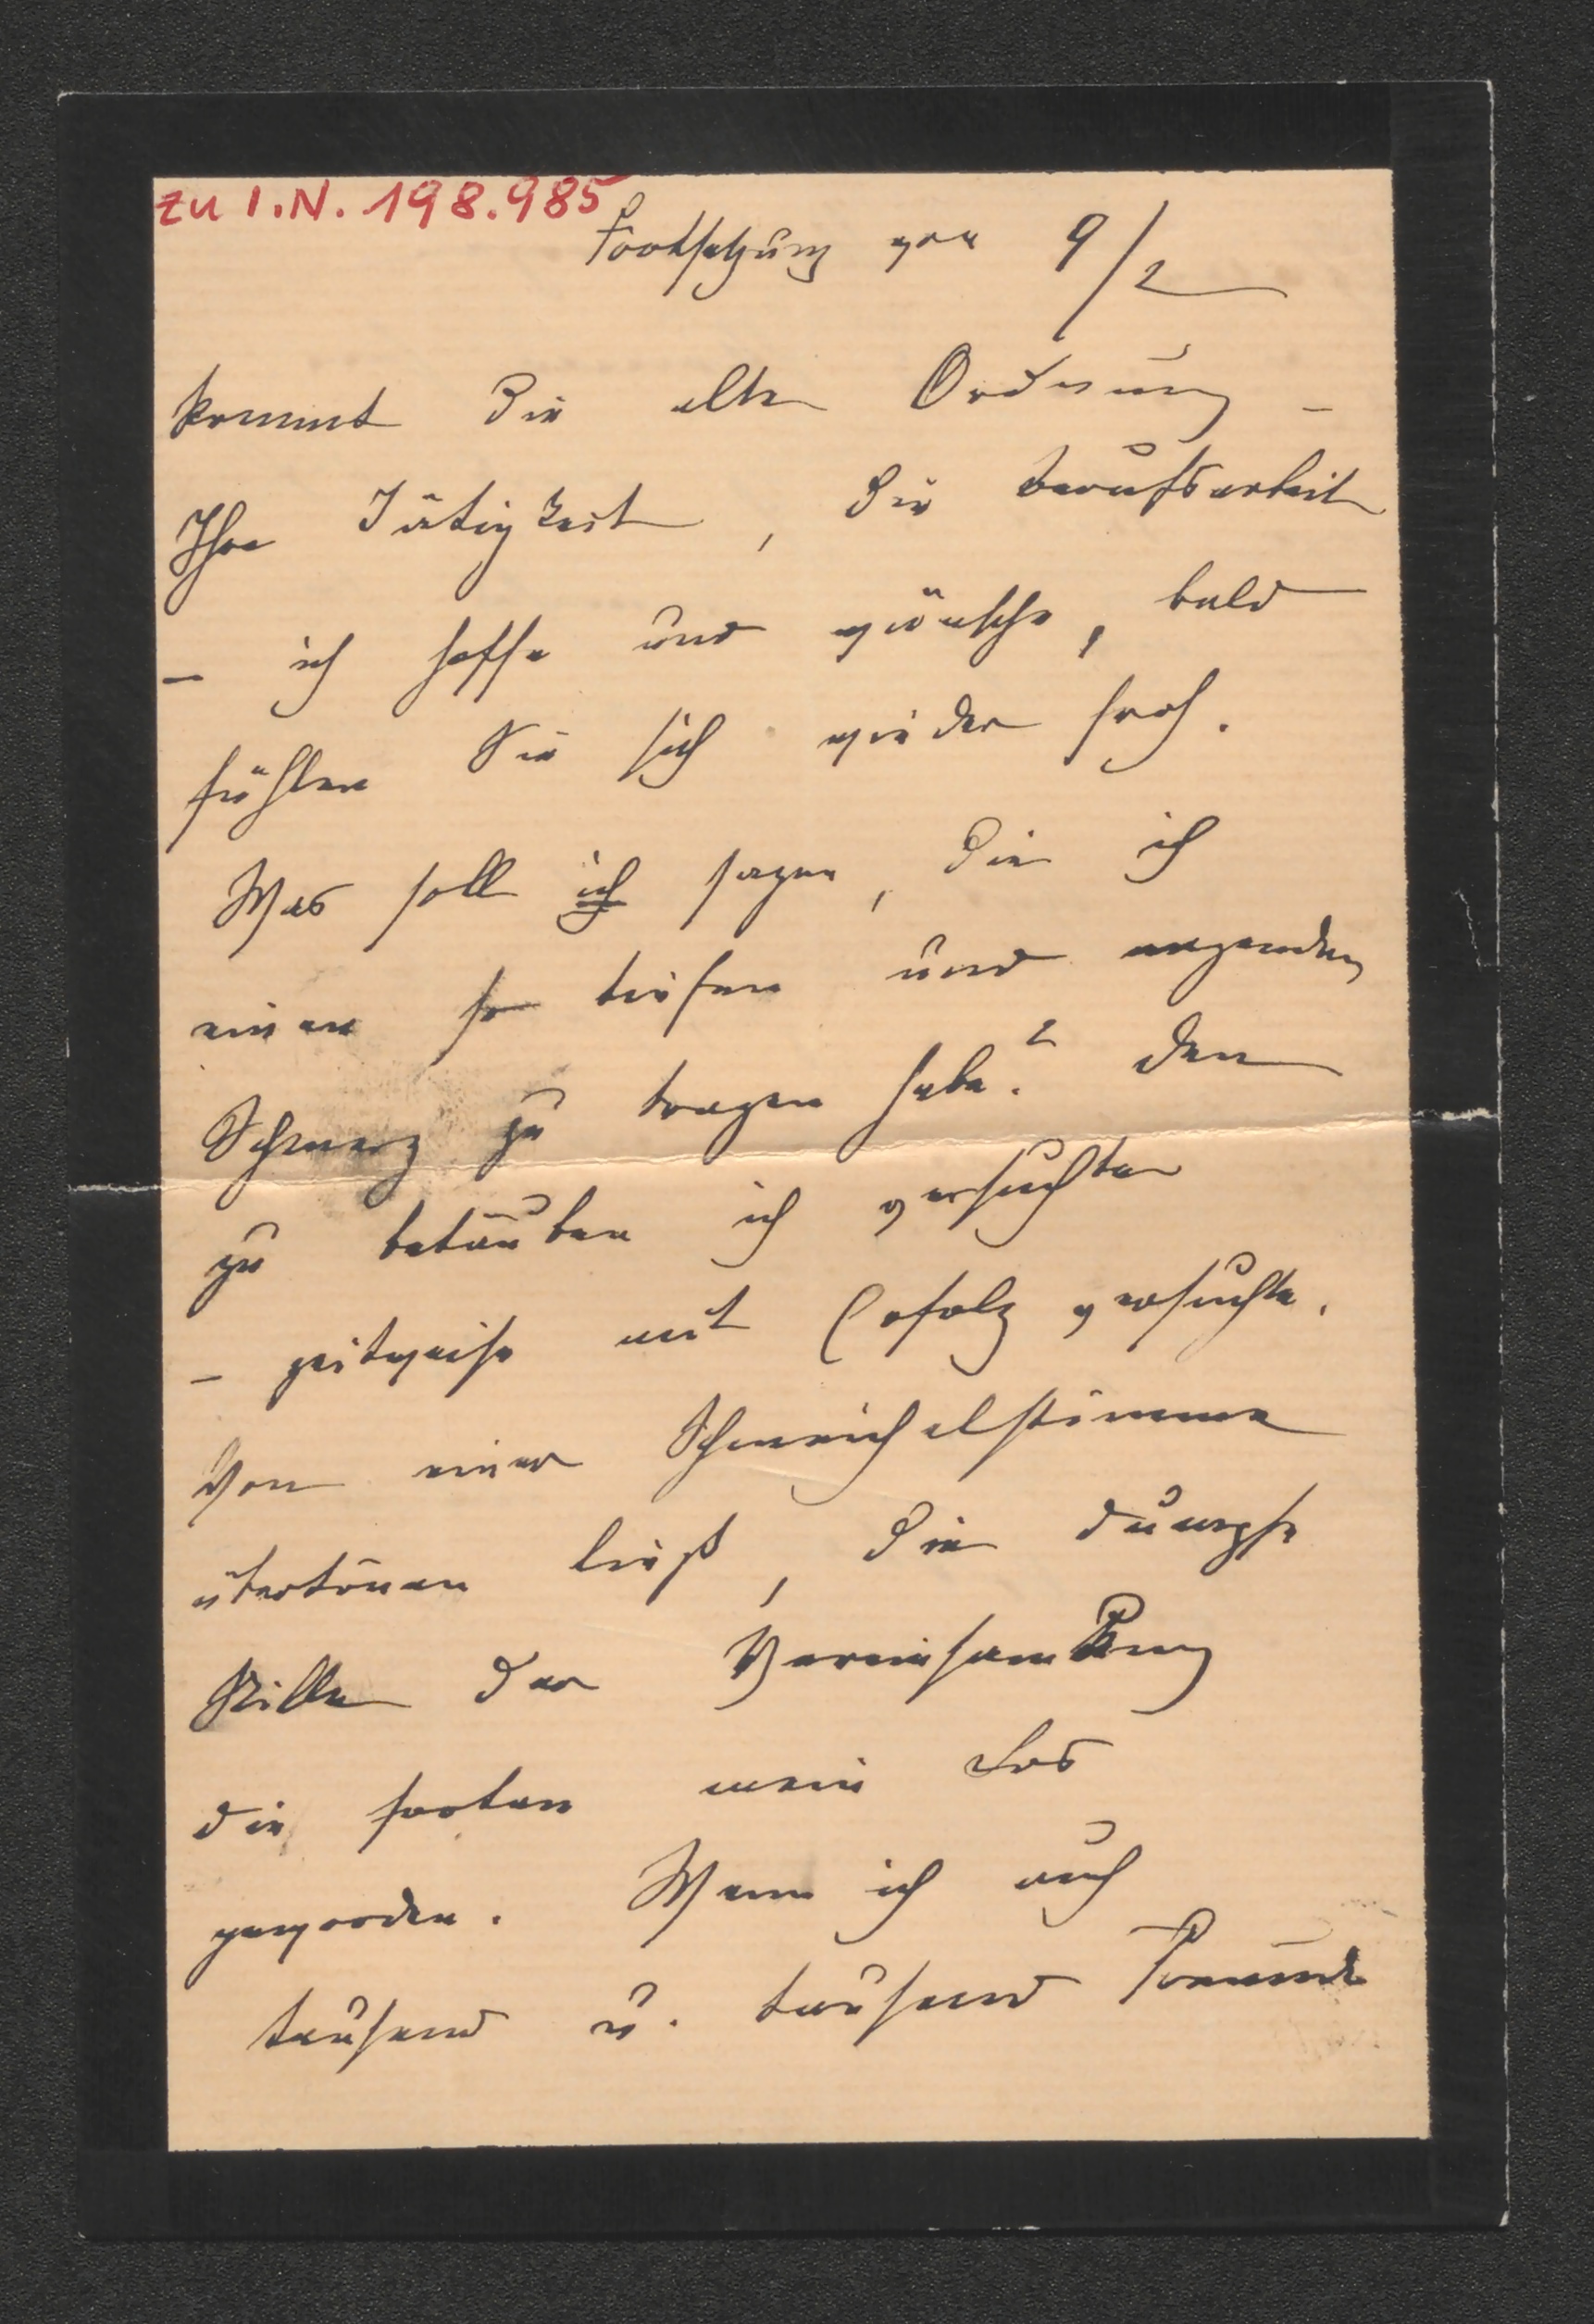 zu I.N. 198.985
Fortsetzung von 9/2
kommt die alte Ordnung –
Ihre Tätigkeit, die Berufsarbeit
– ich hoffe und wünsche, bald
fühlen Sie sich wieder froh.
Was soll ich sagen, die ich
einen so tiefen und nagenden
Schmerz zu tragen habe? Den
zu betäuben ich versuchte
– zeitweise mit Erfolg versuchte.
Von einer Schmeichelstimme
übertönen ließ, die dumpfe
Stille der Vereinsamung
die fortan mein Los
geworden. Wenn ich auch
tausend u. tausend Freunde